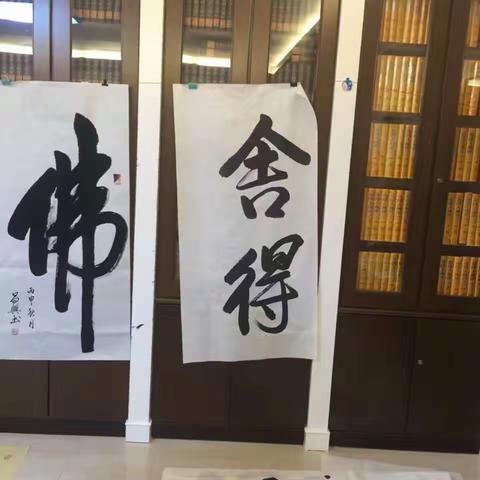 佛
丙申秋月
舍得